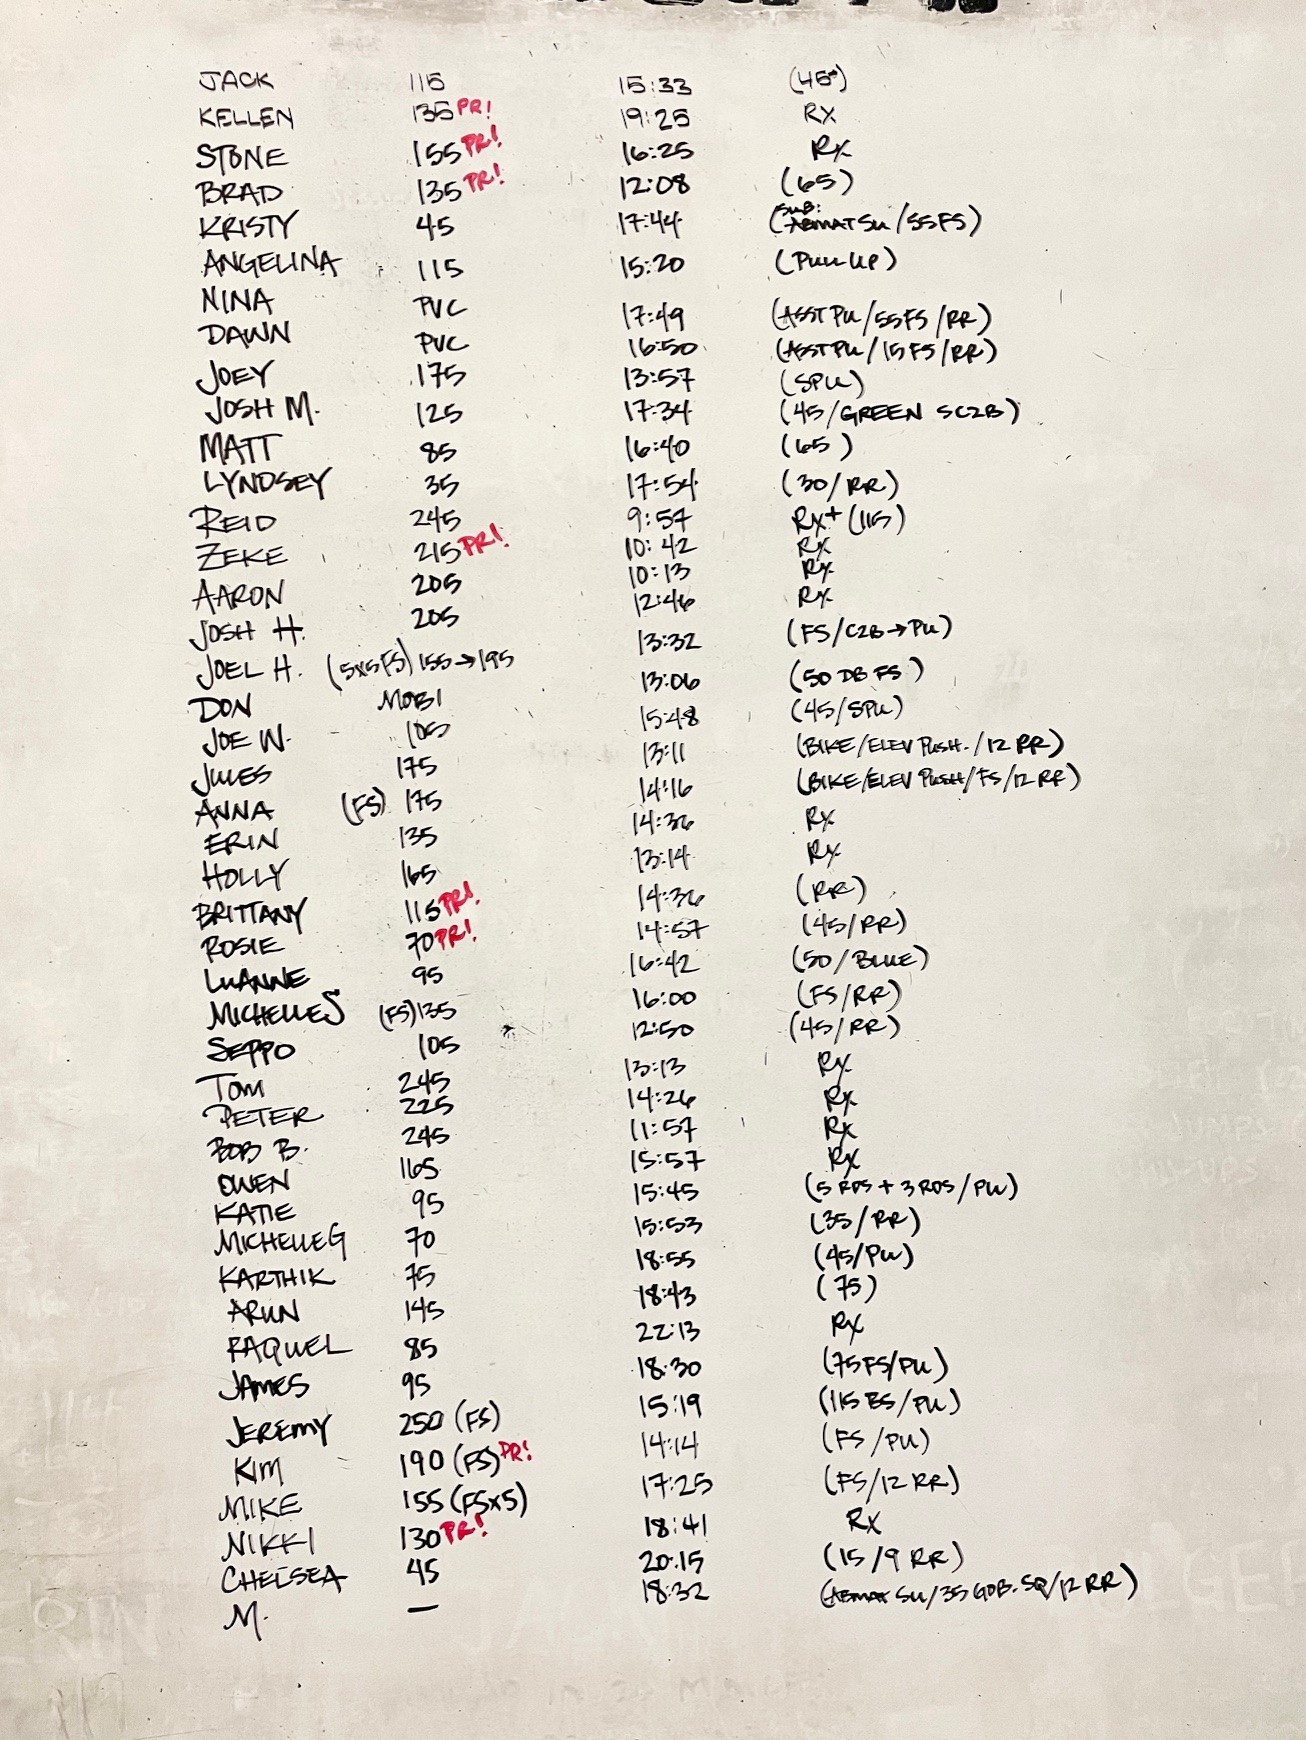 JACK 115 15:33 (45#)
KELLEN 135 PR! 19:25 RX
STONE 155 PR! 16:25 RX
BRAD 135 PR! 12:08 (65)
KRISTY 45 17:44 (SUB: ABMAT SU/55FS)
ANGELINA 115 15:20 (PULL UP)
NINA PVC 17:49 (ASST PU/55FS/RR)
DAWN PVC 16:50 (ASST PU/15FS/RR)
JOEY 175 13:57 (SPU)
JOSH M. 125 17:34 (45/GREEN SC2B)
MATT 85 16:40 (65)
LYNDSEY 35 17:54 (30/RR)
REID 245 9:57 RX+ (115)
ZEKE 215 PR! 10:42 RX
AARON 205 10:13 RX
JOSH H. 205 12:46 RX
JOEL H. (5x5FS) 155→195 13:32 (FS/C2B→PU)
DON MOBI 13:06 (50 DB FS)
JOE W. 105 15:48 (45/SPU)
JULES 175 13:11 (BIKE/ELEV PUSH./12 RR)
ANNA (FS) 175 14:16 (BIKE/ELEV PUSH/FS/12 RR)
ERIN 135 14:36 RX
HOLLY 165 13:14 RX
BRITTANY 115 PR! 14:36 (RR)
ROSIE 70 PR! 14:57 (45/RR)
LUANNE 95 16:42 (50/BLUE)
MICHELLE S (FS) 135 16:00 (FS/RR)
SEPPO 105 12:50 (45/RR)
TOM 245 13:13 RX
PETER 225 14:26 RX
BOB B. 245 11:57 RX
OWEN 165 15:57 RX
KATIE 95 15:45 (5 RDS + 3 RDS/PU)
MICHELLE G 70 15:53 (35/RR)
KARTHIK 75 18:55 (45/PU)
ARUN 145 18:43 (75)
RAQUEL 85 22:13 RX
JAMES 95 18:30 (75FS/PU)
JEREMY 250 (FS) 15:19 (115 BS/PU)
KIM 190 (FS) PR! 14:14 (FS/PU)
MIKE 155 (FSx5) 17:25 (FS/12 RR)
NIKKI 130 PR! 18:41 RX
CHELSEA 45 20:15 (15/9 RR)
M. — 18:32 (ABMAT SU/35 GOB. SQ/12 RR)